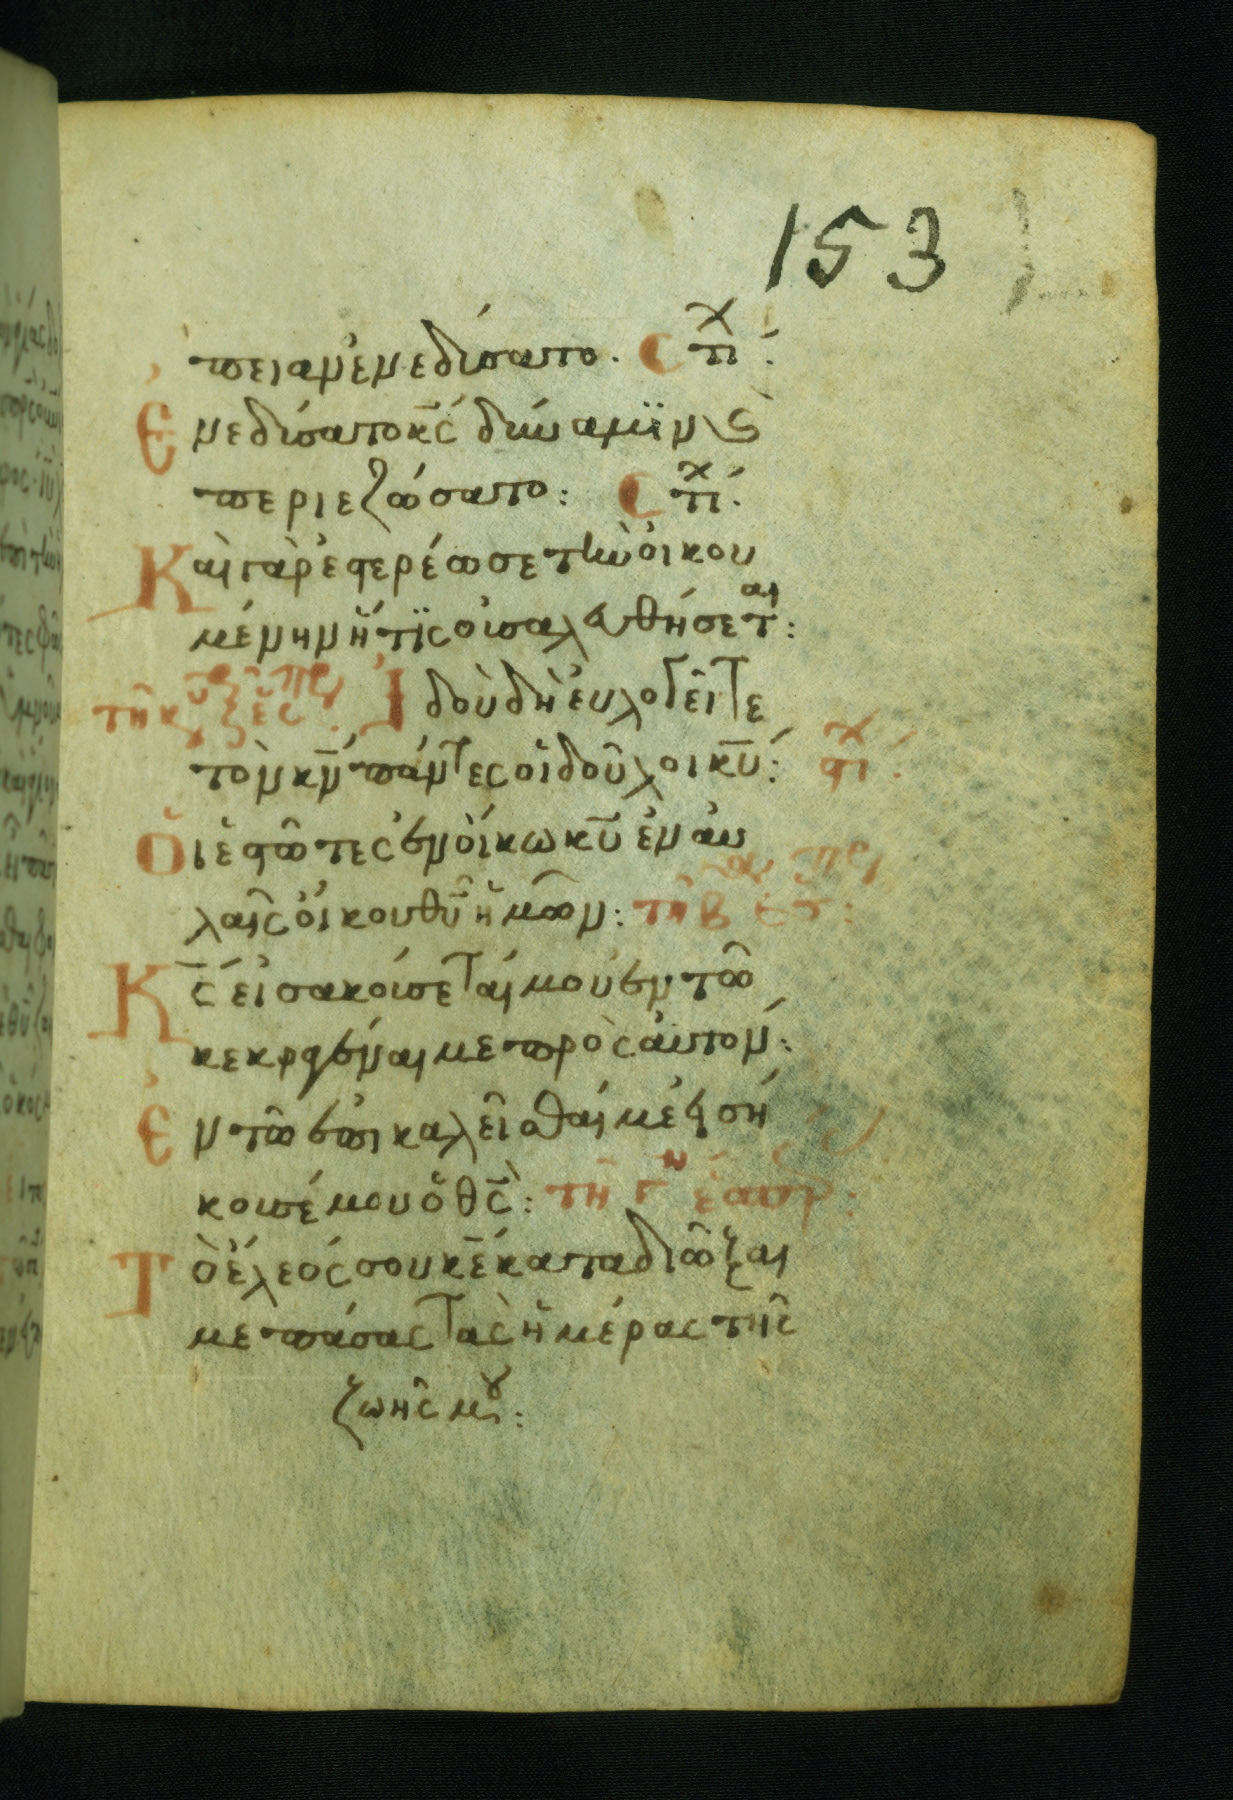 153
πειαν ἐνεδύσατο. στι^χ:
Ἐνεδύσατο κ̅ς δύναμϊν ϗ
περιεζώσατο: στι^χ.
Καὶ γὰρ ἐστερέωσε τὴν οἰκου
μένην ἥτϊς οὐ σαλευθήσετ^αι:
τῆ κυ ἑς Ἰδοὺ δὴ εὐλογεῖτε
τὸν κ̅ν πάντες οἱ δοῦλοι κ̅υ: στι^χ.
Οἱ ἑστῶτες ἐν οἴκω κ̅υ ἐν αυ
λαῖς οἴκου θ̅υ ἡμῶν: τῆ β ἑσπ:
Κ̅ς εἰσακούσεταί μου ἐν τῶ
κεκραγέναι με πρὸς αὐτόν:
Ἐν τῶ ἐπικαλεῖσθαί με εἰσή
κουσέ μου ὁ θ̅ς: τῆ γ ἑσπερ:
Τὸ ἔλεός σου κ̅ε καταδιώξαι
με πάσας τὰς ἡμέρας τῆς
ζωῆς μου: